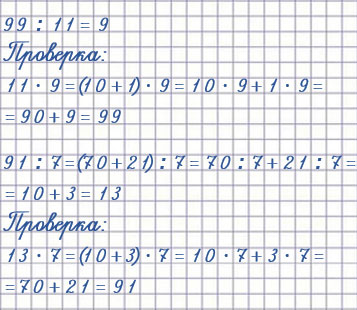 99 : 11 = 9
Проверка:
11 · 9 = (10 + 1) · 9 = 10 · 9 + 1 · 9 =
= 90 + 9 = 99
91 : 7 = (70 + 21) : 7 = 70 : 7 + 21 : 7 =
= 10 + 3 = 13
Проверка:
13 · 7 = (10 + 3) · 7 = 10 · 7 + 3 · 7 =
= 70 + 21 = 91